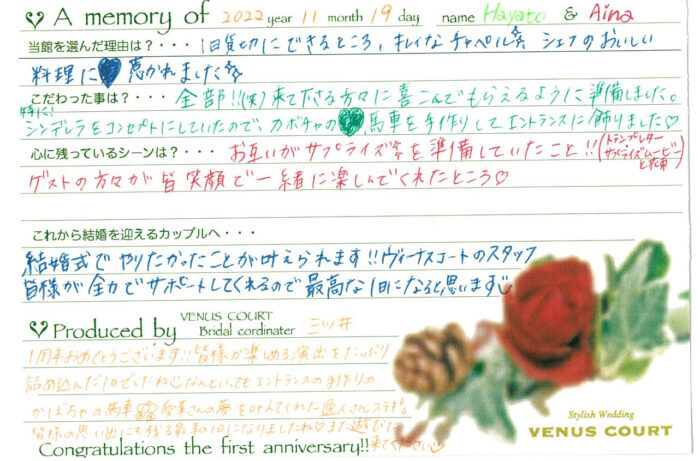 A memory of 2022 year 11 month 19 day name Hayato & Aina
当館を選んだ理由は？・・・1日貸切にできるところ、キレイなチャペル、シェフのおいしい
料理に惹かれました
こだわった事は？・・・全部!!(笑)来て下さる方々に喜こんでもらえるように準備しました。
特に!
シンデレラをコンセプトにしていたので、カボチャの馬車を手作りしてエントランスに飾りました♡
心に残っているシーンは？・・・お互いがサプライズを準備していたこと!!(トランプレター
サプライズムービー
と花束)
ゲストの方々が皆笑顔で一緒に楽しんでくれたところ♡
これから結婚を迎えるカップルへ・・・
結婚式でやりたかったことが叶えられます!!ヴィーナスコートのスタッフ
皆様が全力でサポートしてくれるので最高な1日になると思います
Produced by VENUS COURT
Bridal cordinater 三ツ井
1周年おめでとうございます!!皆様が楽しめる演出をたっぷり
詰め込んだ1日でしたねなんといってもエントランスの手作りの
かぼちゃの馬車 さんの夢を叶えてくれた さんステキ。
皆様の思い出にも残る最高の1日になりましたね♡また遊びに
来てください
Congratulations the first anniversary!!
Stylish Wedding
VENUS COURT